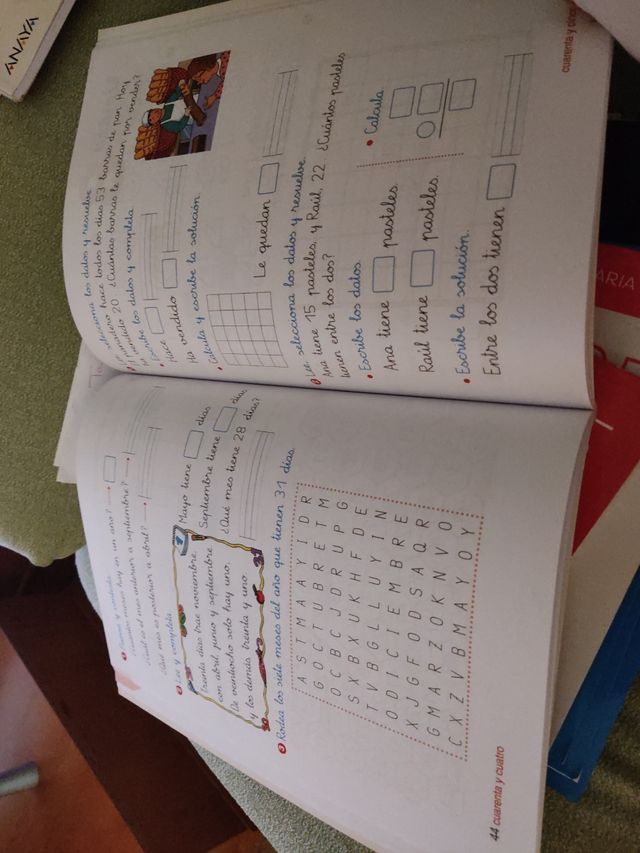 ¿Cuántos meses hay en un año?
¿Cuál es el mes anterior a septiembre?
¿Qué mes es posterior a abril?
2 Lee y completa.
Treinta días trae noviembre
con abril, junio y septiembre.
De veintiocho solo hay uno,
y los demás treinta y uno.
1
30
31
Mayo tiene días
Septiembre tiene días
¿Qué mes tiene 28 días?
3 Rodea los siete meses del año que tienen 31 días.
A S T M A A Y I D R
G O C T U B R E T M
O C B C J D R U P G
S X B X U K H F D E
T V B G L L U Y I N
O D I C I E M B R E
X J G F O D S A Q R
G M A R Z O K N V O
C X Z V B M A Y O Y
44 cuarenta y cuatro
selecciona los datos y resuelve.
panadero hace todos los días 53 barras de pan. Hoy
vendido 20. ¿Cuántas barras le quedan por vender?
• Escribe los datos y completa.
Hace
Ha vendido
• Calcula y escribe la solución.
Le quedan
Lee, selecciona los datos y resuelve.
Ana tiene 15 pasteles, y Raúl, 22. ¿Cuántos pasteles
tienen entre los dos?
• Escribe los datos.
Ana tiene pasteles.
Raúl tiene pasteles.
• Calcula
• Escribe la solución.
Entre los dos tienen
cuarenta y
ANAYA
ARIA